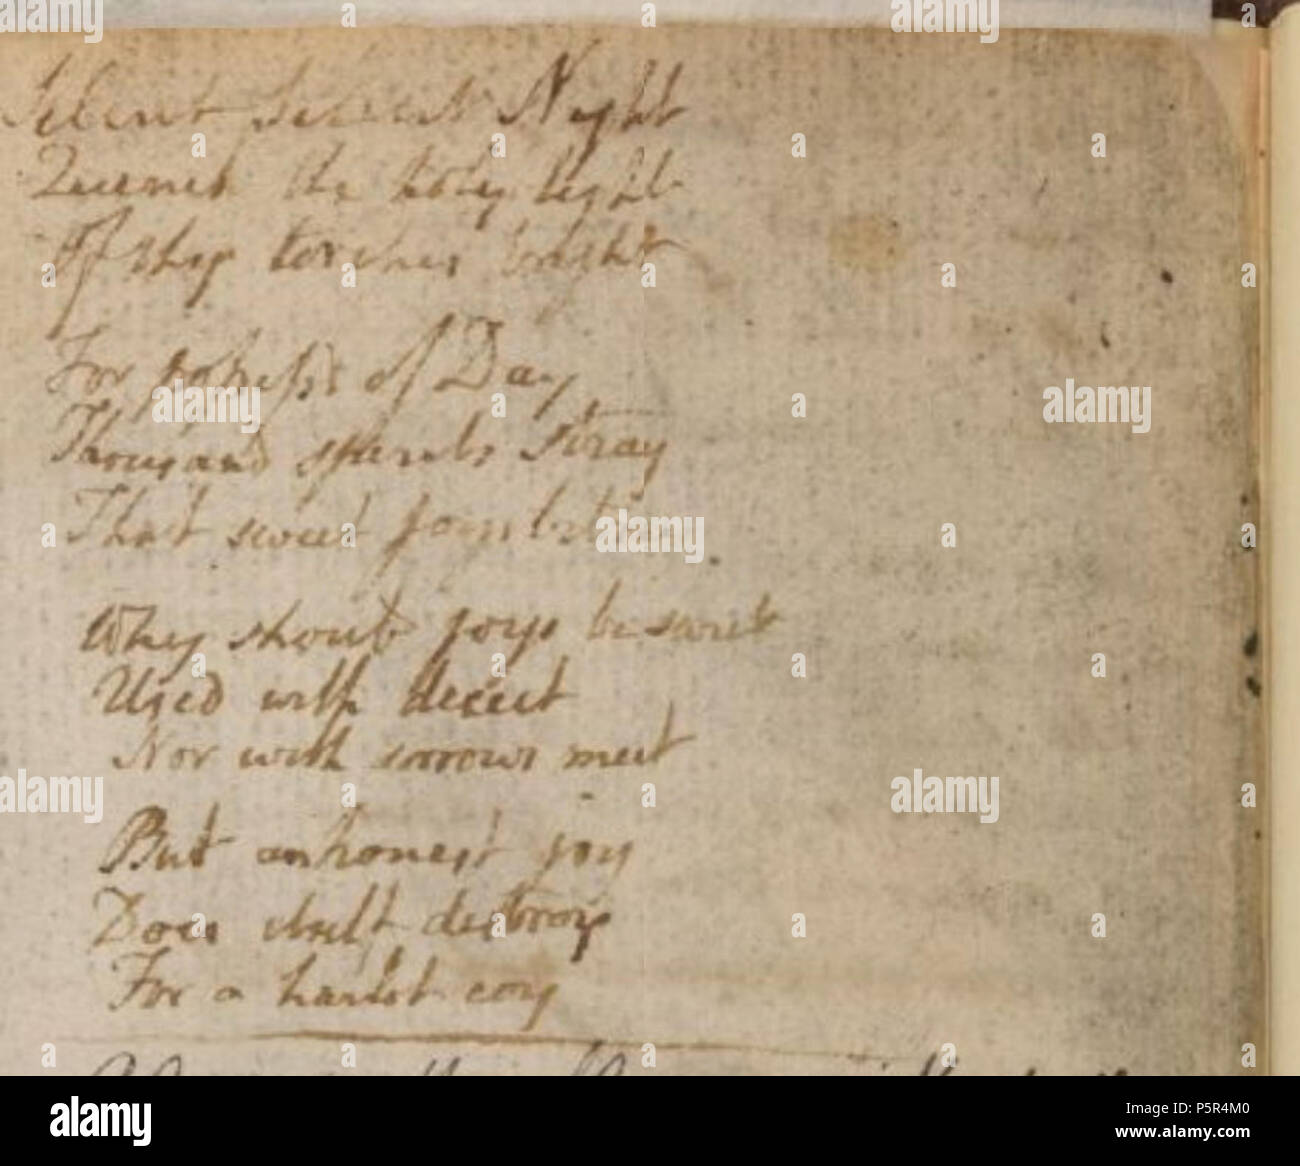 Silent Silent Night
Quench the holy light
Of thy torches bright
For possessd of Day
Thousand spirits stray
That sweet joys betray
Why should joys be sweet
Used with deceit
Nor with sorrows meet
But an honest joy
Does itself destroy
For a harlot coy
alamy
Image ID: P5R4M0
www.alamy.com